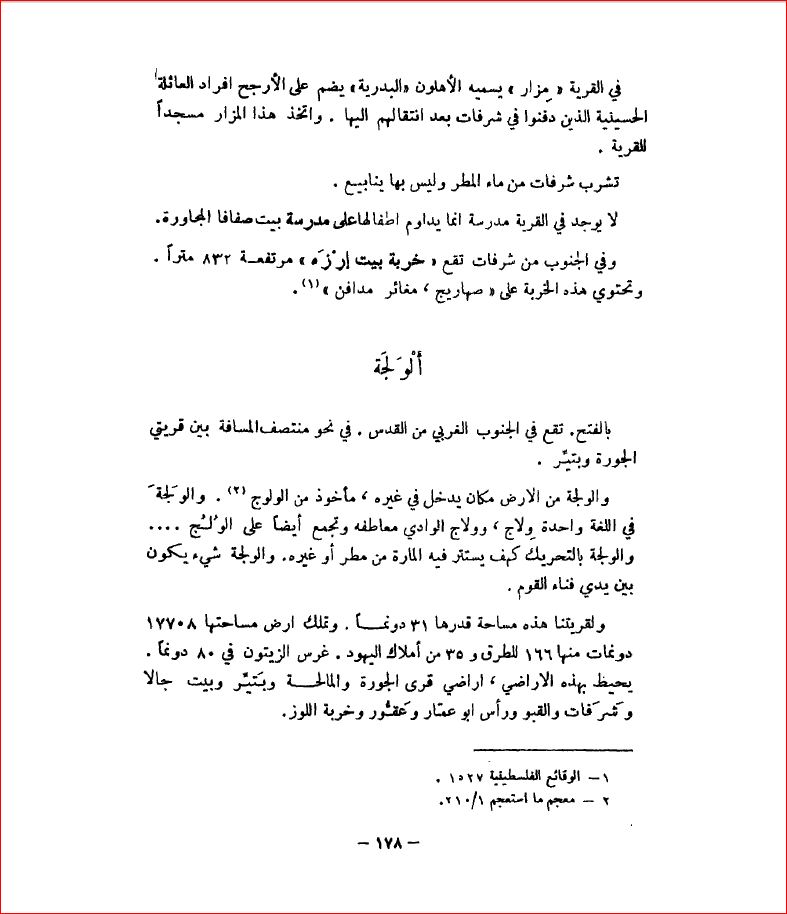 في القرية « مِزار » يسميه الأهلون «البدرية» يضم على الأرجح افراد العائلة
الحسينية الذين دفنوا في شرفات بعد انتقالهم اليها . واتخذ هذا المزار مسجداً
للقرية .
تشرب شرفات من ماء المطر وليس بها ينابيع .
لا يوجد في القرية مدرسة انما يداوم اطفالها على مدرسة بيت صفافا المجاورة.
وفي الجنوب من شرفات تقع « خربة بيت إرْزَه » مرتفعة ٨٣٢ متراً .
وتحتوي هذه الخربة على « صهاريج ، مغائر مدافن » (١).
ألْوَلَجَة
بالفتح. تقع في الجنوب الغربي من القدس . في نحو منتصف المسافة بين قريتي
الجورة وبتيِّر .
والولجة من الارض مكان يدخل في غيره ، مأخوذ من الولوج (٢) . والوَلجَة
في اللغة واحدة وِلاج ، وولاج الوادي معاطفه وتجمع أيضاً على الوُلُج ....
والولجة بالتحريك كهف يستتر فيه المارة من مطر أو غيره. والولجة شيء يكون
بين يدي فناء القوم .
ولقريتنا هذه مساحة قدرها ٣١ دونماً . وتملك ارض مساحتها ١٧٧٠٨
دونمات منها ١٦٦ للطرق و ٣٥ من أملاك اليهود . غرس الزيتون في ٨٠ دونماً .
يحيط بهذه الاراضي ، اراضي قرى الجورة والمالحة وبَتيِّر وبيت جالا
وشَرَفات والقبو ورأس ابو عمّار وعَقّور وخربة اللوز.
١ – الوقائع الفلسطينية ١٥٢٧ .
٢ – معجم ما استعجم ٢١٠/١.
– ١٧٨ –